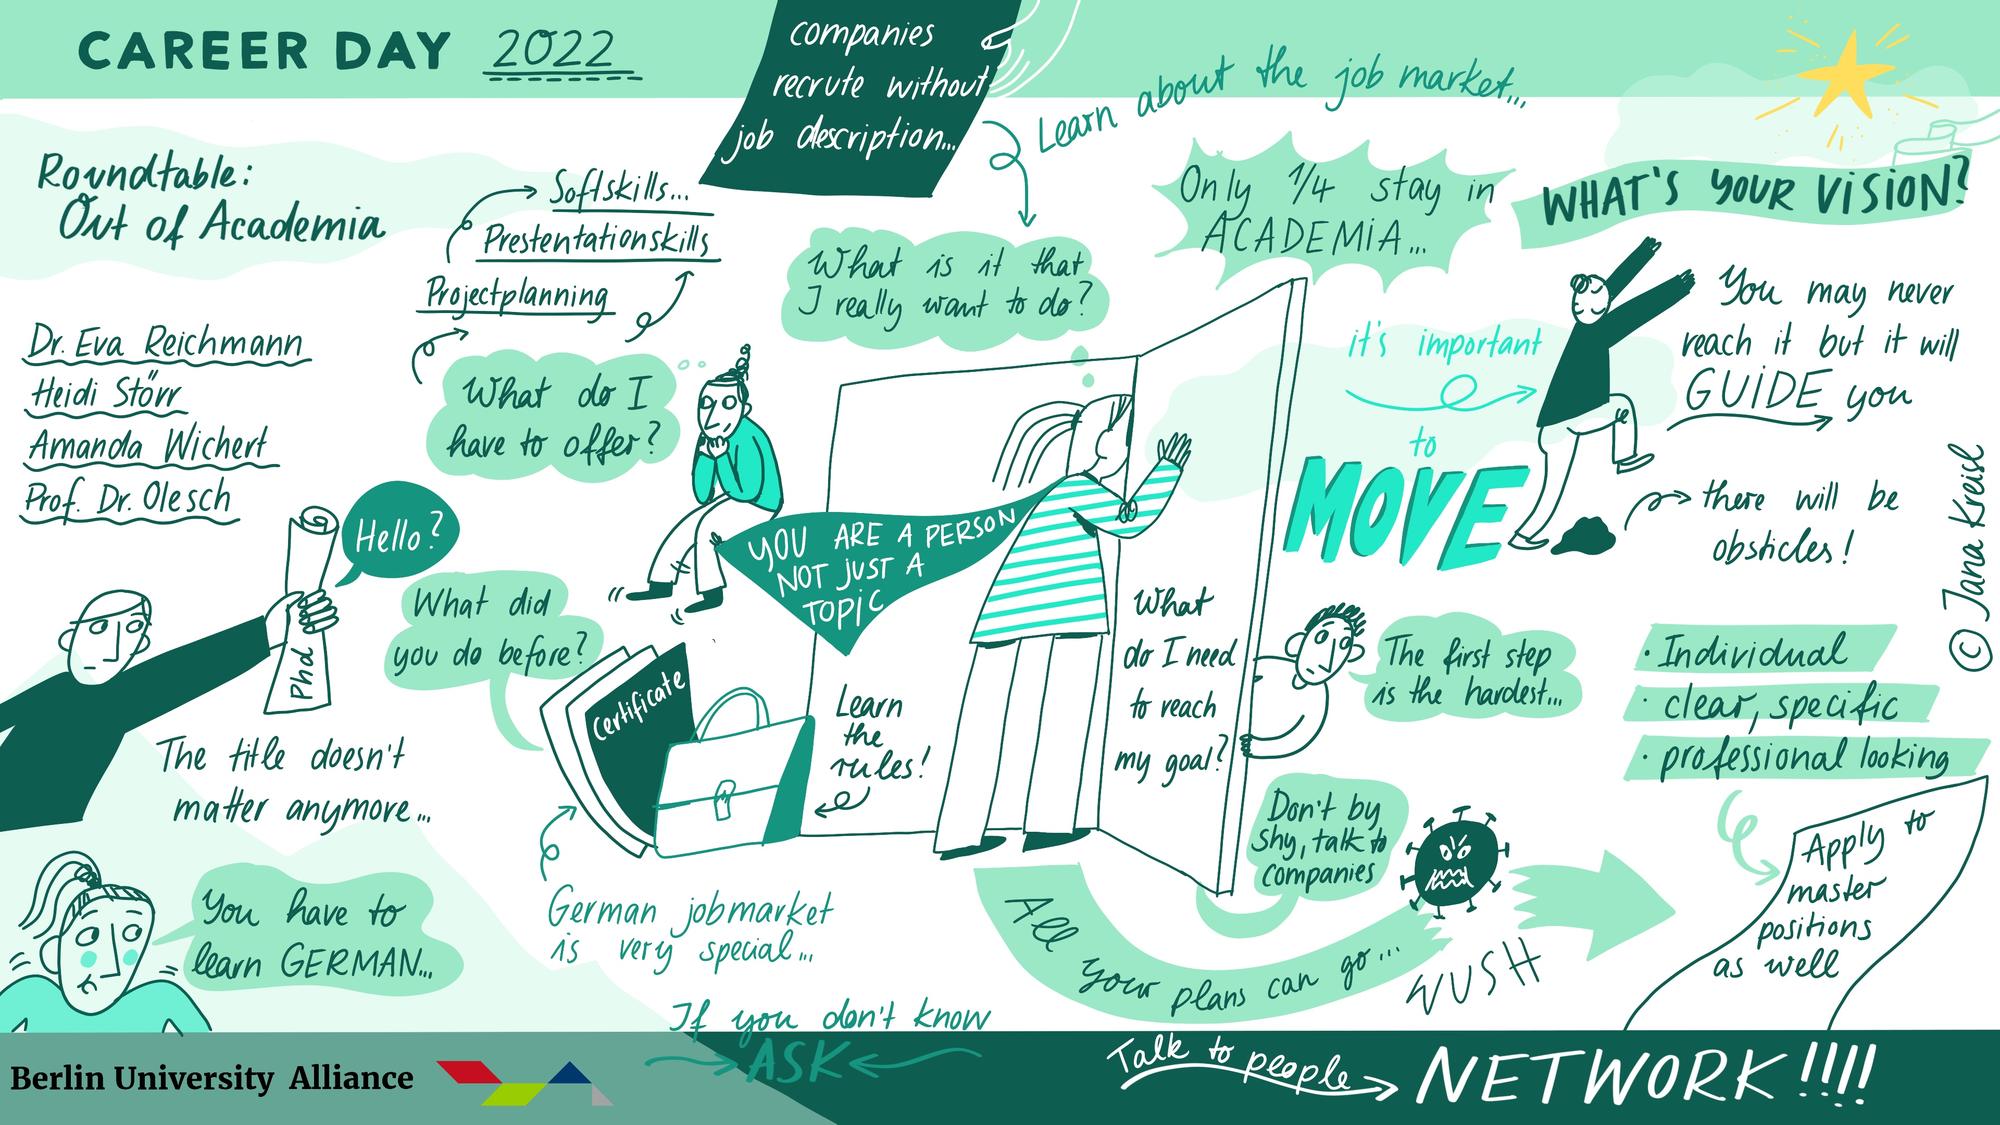 CAREER DAY 2022
companies
recrute without
job description...
Learn about the job market...
Roundtable:
Out of Academia
Softskills...
Prestentationskills
Projectplanning
What do I
have to offer?
Dr. Eva Reichmann
Heidi Störr
Amanda Wichert
Prof. Dr. Olesch
Hello?
Phd
What did
you do before?
The title doesn't
matter anymore...
You have to
learn GERMAN...
Certificate
German jobmarket
is very special...
What is it that
I really want to do?
YOU ARE A PERSON
NOT JUST A
TOPIC
Learn
the
rules!
What
do I need
to reach
my goal?
Only 1/4 stay in
ACADEMIA...
it's important
to
MOVE
WHAT'S YOUR VISION?
You may never
reach it but it will
GUIDE you
there will be
obsticles!
© Jana Kreisl
The first step
is the hardest...
Don't by
shy, talk to
companies
All your plans can go...
WUSH
· Individual
· clear, specific
· professional looking
Apply to
master
positions
as well
If you don't know
ASK
Talk to people
NETWORK!!!!
Berlin University Alliance